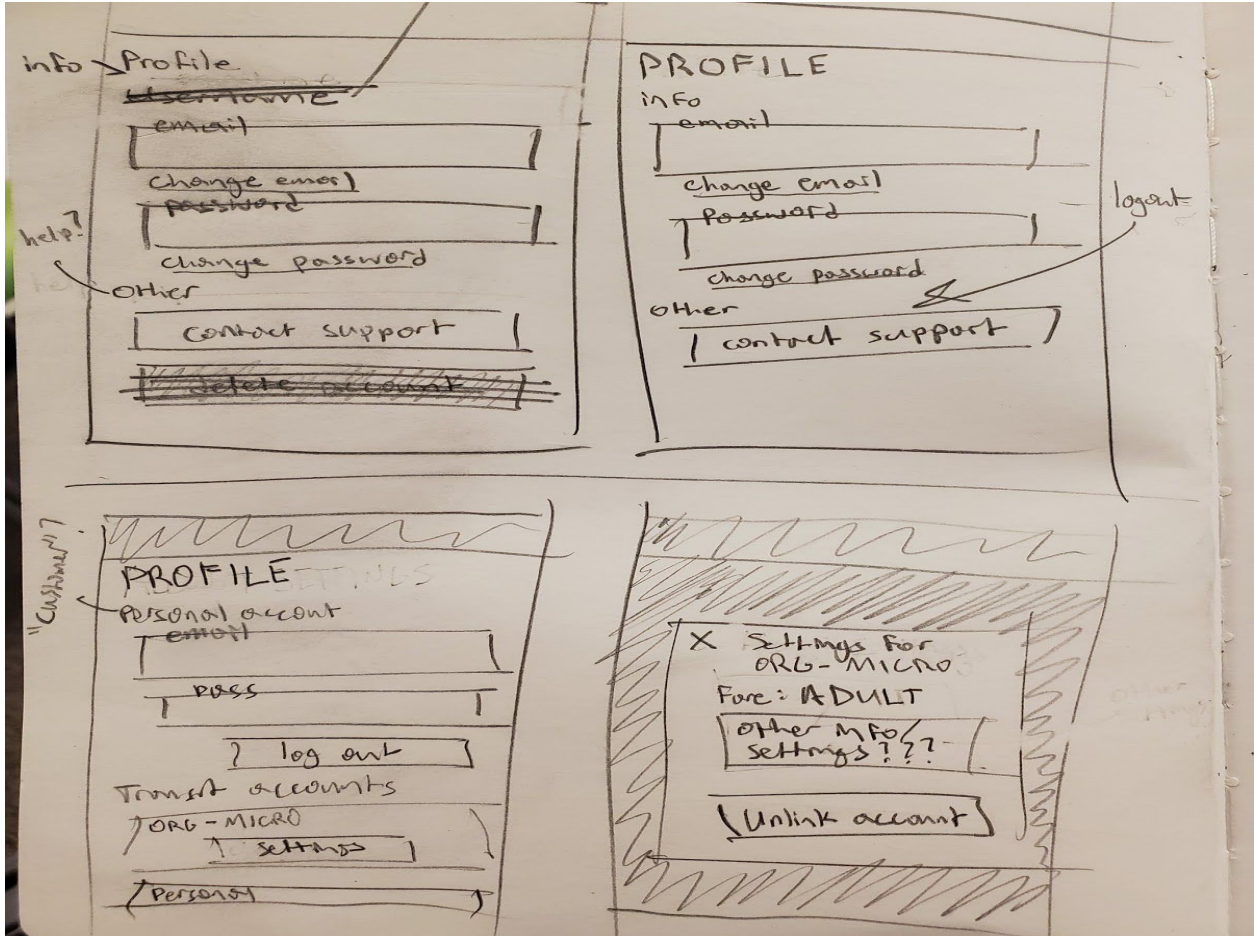 info
Profile
Username
email
change email
password
change password
help?
Other
contact support
Delete account
PROFILE
info
email
change email
Password
change password
logout
other
contact support
"Customer"?
PROFILE
Personal accont
email
pass
log out
Transit accounts
ORG-MICRO
settings
Personal
X Settings For
ORG-MICRO
Fare: ADULT
other info/
settings???
Unlink account